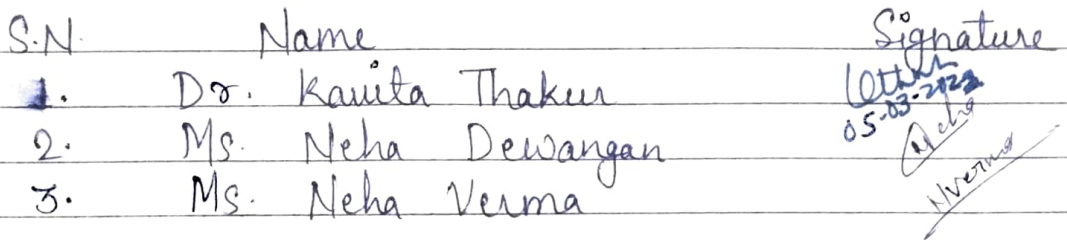 S.N. Name Signature
1. Dr. Kavita Thakur
05-03-2022
2. Ms. Neha Dewangan Neha
3. Ms. Neha Verma NVerma